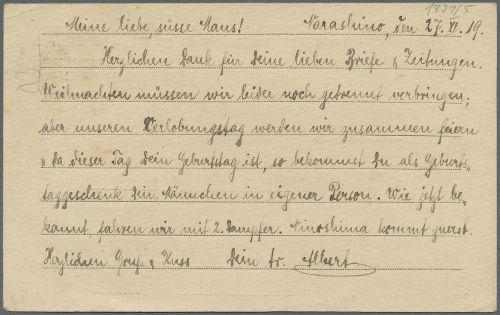 1937/5
Meine liebe, süsse Maus! Narashino, den 27. XI. 19.
Herzlichen Dank für Deine lieben Briefe & Zeitungen.
Weihnachten müssen wir leider noch getrennt verbringen;
aber unseren Verlobungstag werden wir zusammen feiern
u. da dieser Tag Dein Geburtstag ist, so bekommst Du als Geburts„
taggeschenk Dein Männchen in eigener Person. Wie jetzt be„
kannt, fahren wir mit 2. Dampfer. Ninoshima kommt zuerst.
Herzlichen Gruß & Kuss Dein tr. Albert